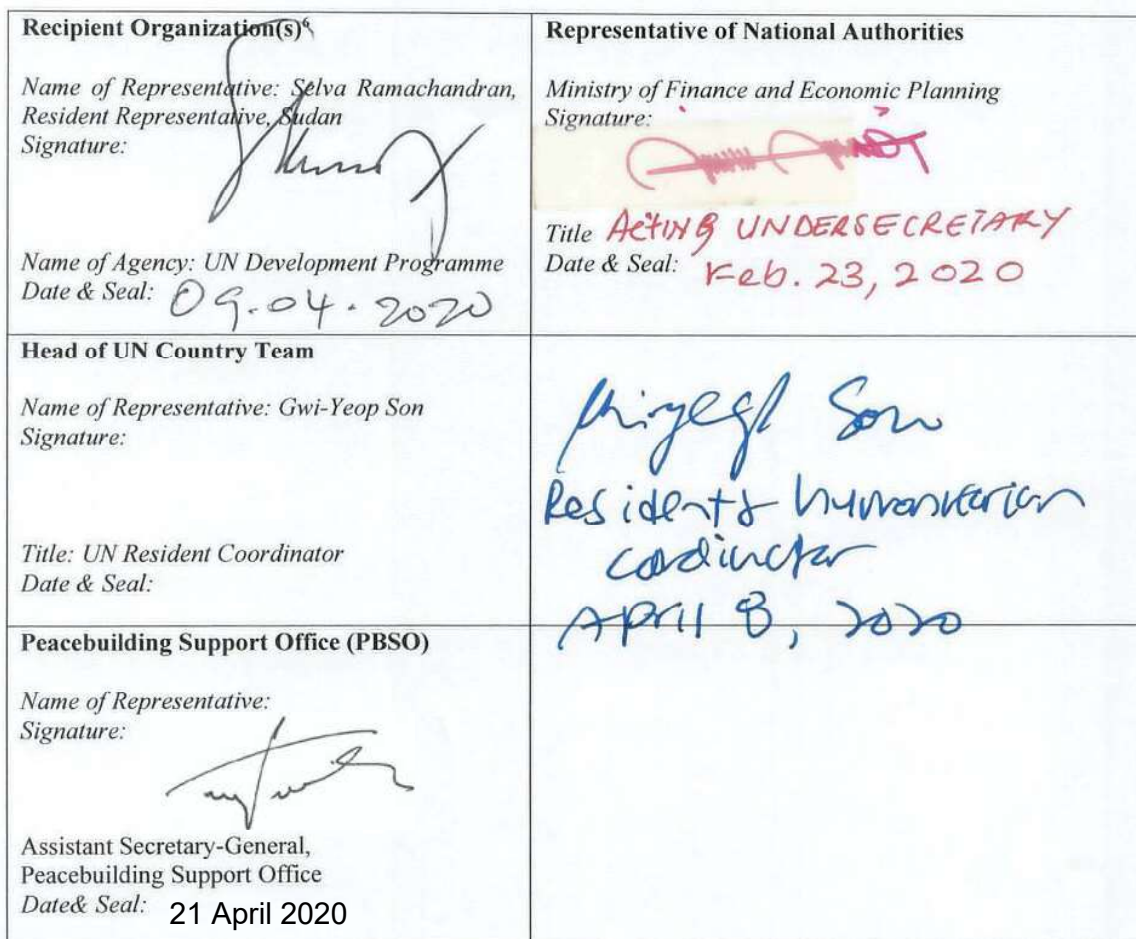 Recipient Organization(s)⁶
Name of Representative: Selva Ramachandran,
Resident Representative, Sudan
Signature:
Name of Agency: UN Development Programme
Date & Seal: 09.04.2020
Representative of National Authorities
Ministry of Finance and Economic Planning
Signature:
Title ActING UNDERSECRETARY
Date & Seal: Feb. 23, 2020
Head of UN Country Team
Name of Representative: Gwi-Yeop Son
Signature:
Title: UN Resident Coordinator
Date & Seal:
Son
Resident & humanitarian
April 8, 2020
Peacebuilding Support Office (PBSO)
Name of Representative:
Signature:
Assistant Secretary-General,
Peacebuilding Support Office
Date& Seal: 21 April 2020